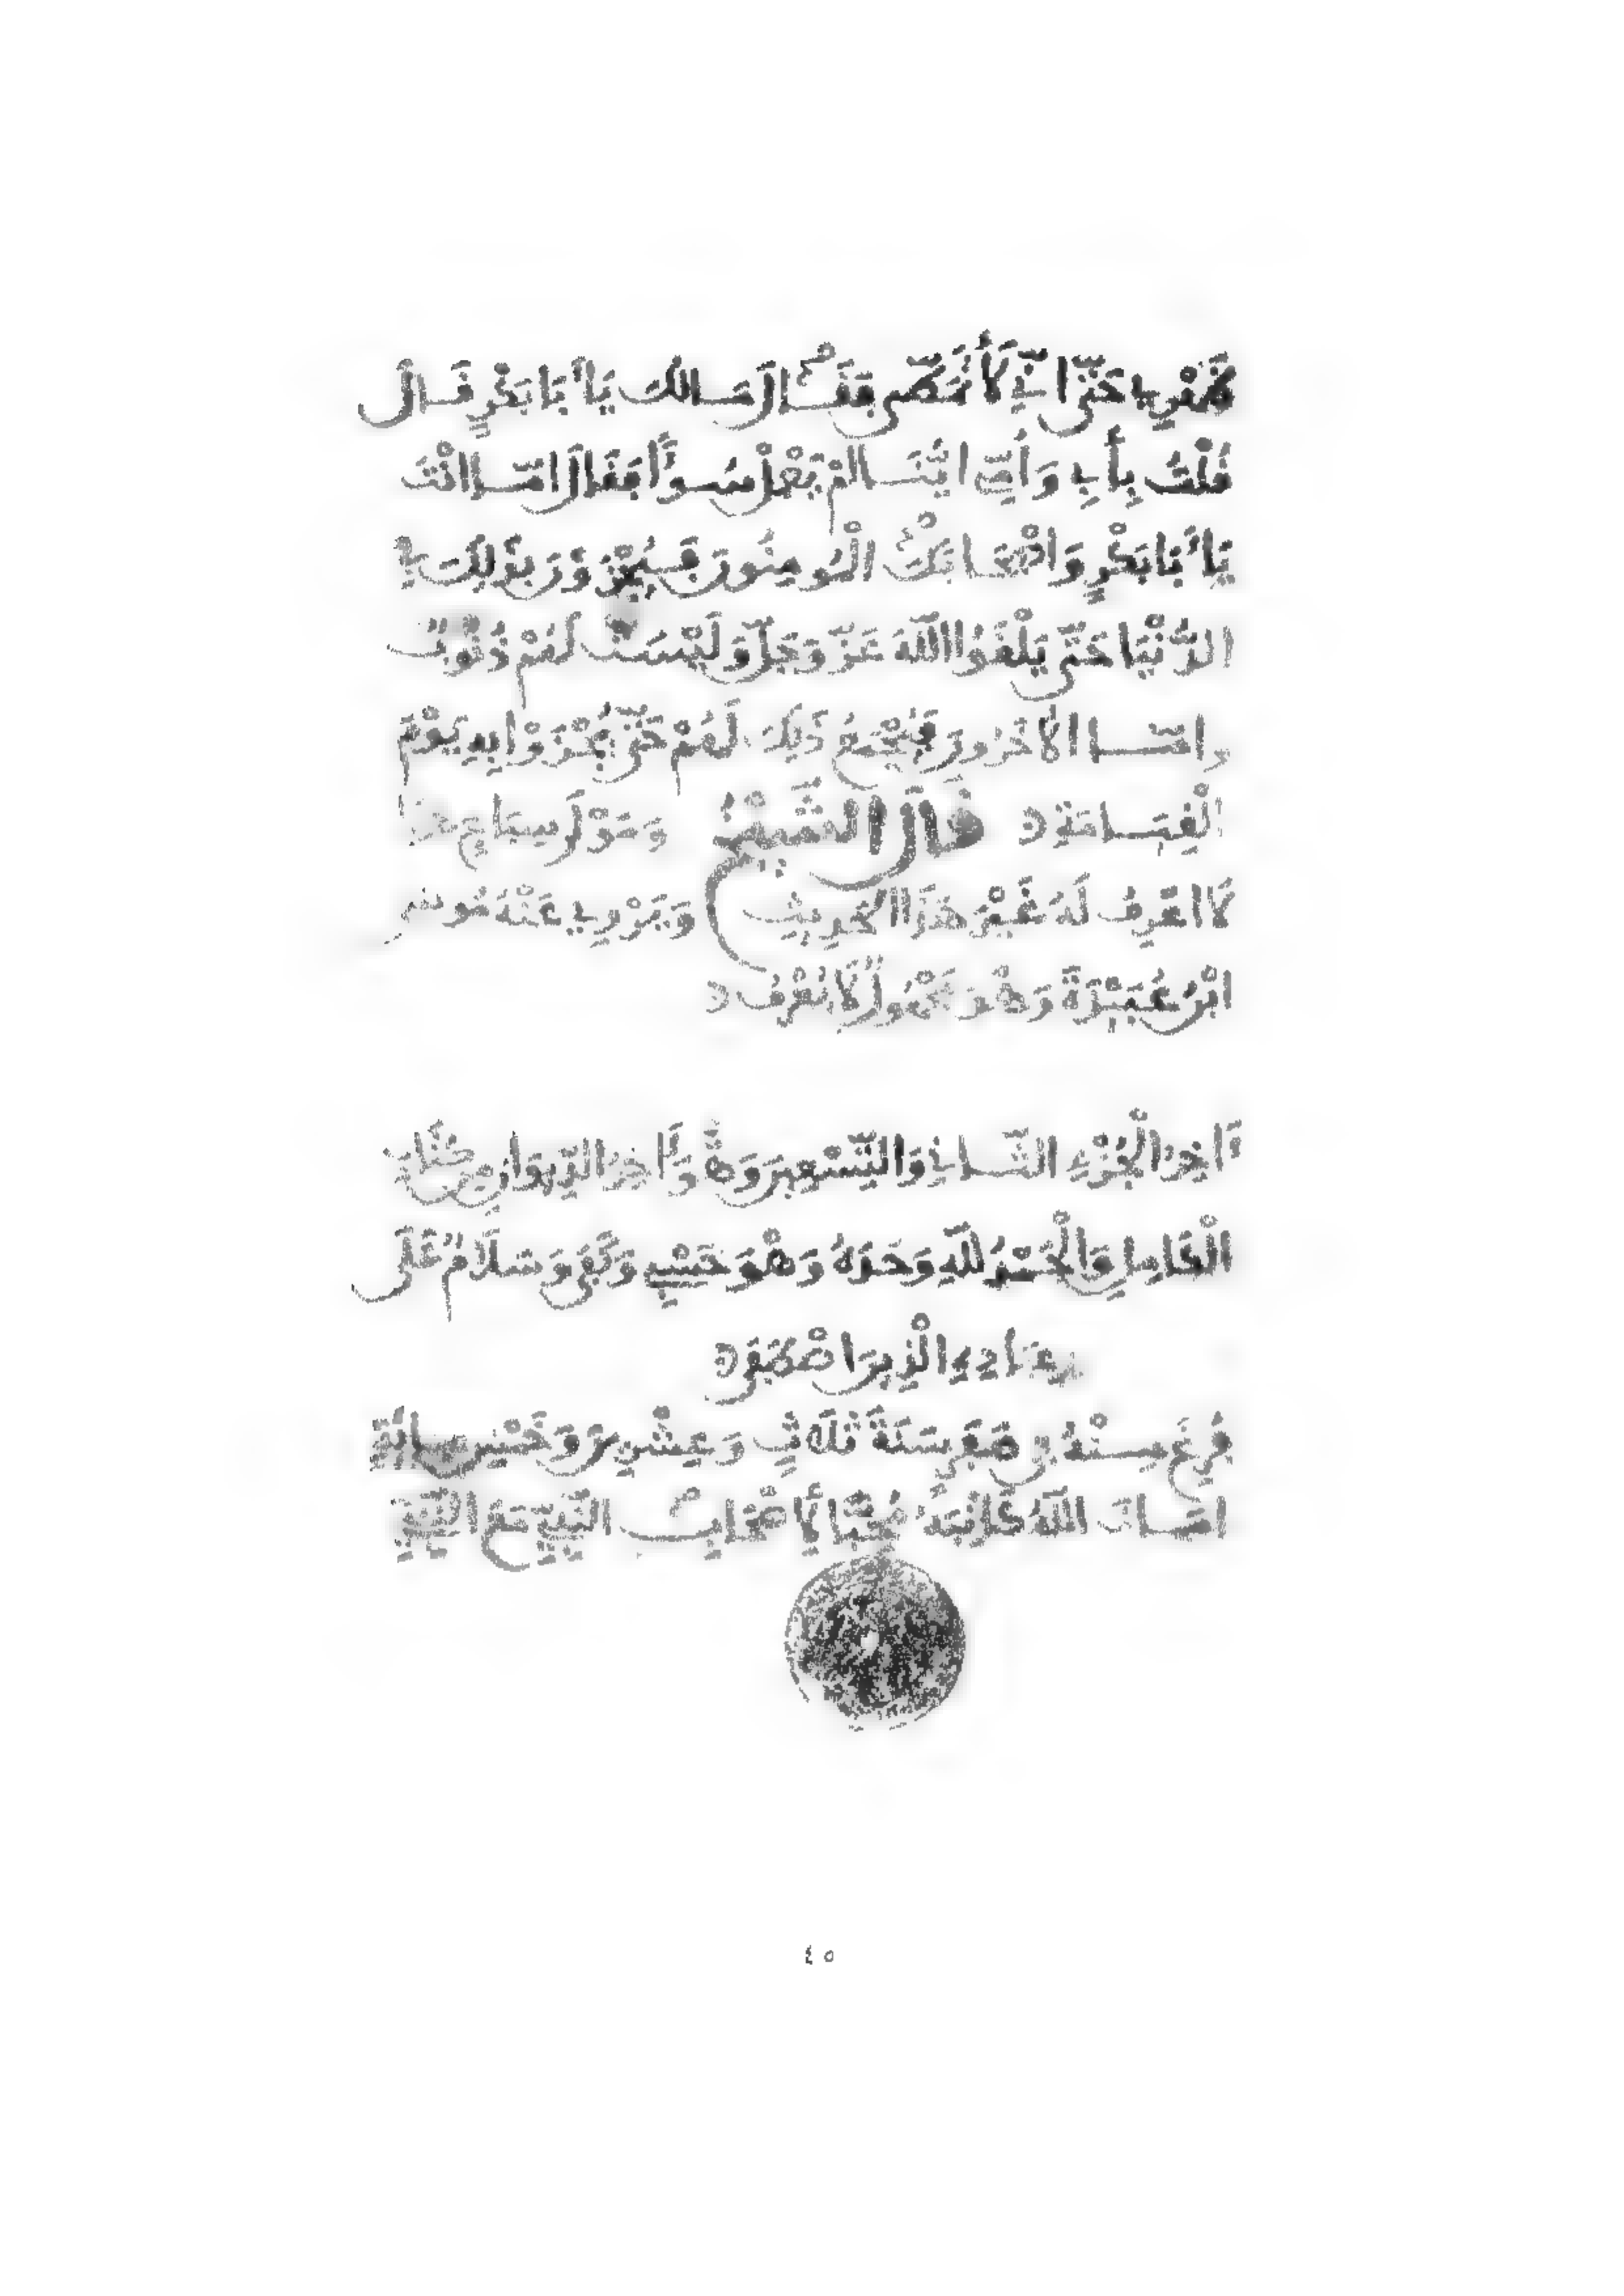 ظَهْرِي حَتَّى انِّي لَأَتَمَطَّى فَقَالَ مَا لَكَ يَا أَبَا بَكْرٍ قَالَ
قُلْتُ بِأَبِي وَأُمِّي ايُّنَا لَمْ يَعْمَلْ سُوًا فَقَالَ امَّا انْتَ
يَا أَبَا بَكْرٍ وَاصْحَابُكَ الْمُومِنُونَ فَسَيُجْزَوْنَ بِذَلِكَ فِي
الدُّنْيَا حَتَّى يَلْقَوُا اللَّهَ عَزَّ وَجَلَّ وَلَيْسَتْ لَهُمْ ذُنُوبٌ
وامَّا الْآخَرُونَ فَيُجْمَعُ ذَلِكَ لَهُمْ حَتَّى يُجْزَوْا بِهِ يَوْمَ
الْقِيَامَةِ قَالَ الشَّيْخُ وَمَوْلَى سِبَاعٍ هذا
لَا اعْرِفُ لَهُ غَيْرَ هَذَا الْحَدِيثِ وَيَرْوِي عَنْهُ مُوسَى
ابْنُ عُبَيْدَةَ وَهْوَ مَجْهُولٌ لَا يُعْرَفُ
آخِرُ الْجُزْءِ الثَّانِي وَالتِّسْعِينَ وَهْوَ آخِرُ الدِّيوَانِ مِنْ كِتَابِ
الْكَامِلِ وَالْحَمْدُ لِلَّهِ وَحْدَهُ وَهْوَ حَسْبِي وَكَفَى وَسَلَامٌ عَلَى
عِبَادِهِ الَّذِينَ اصْطَفَى
فُرِغَ مِنْهُ فِي صَفَرِ سَنَةَ ثَلَاثٍ وَعِشْرِينَ وَخَمْسِ مِائَةٍ
امَاتَ اللَّهُ كَاتِبَهُ مُحِبًّا لِأَصْحَابِ النَّبِيِّ مَعَ النَّبِيِّ
٤٥